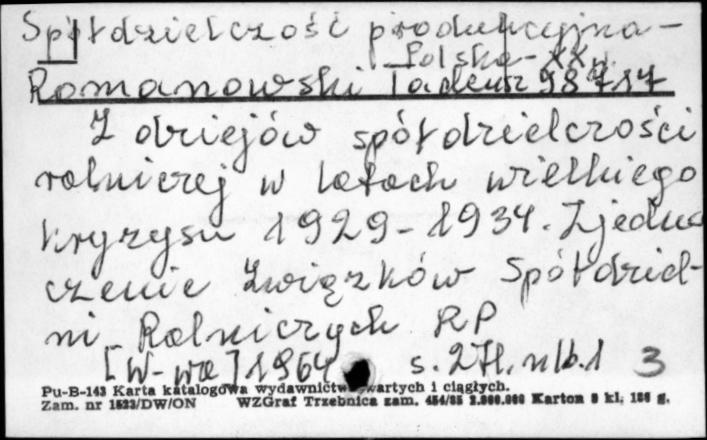 Spółdzielczość produkcyjna –
Polska – XX w.
Romanowski Tadeusz 98717
Z dziejów spółdzielczości
rolniczej w latach wielkiego
kryzysu 1929-1934. Zjedno
czenie Związków Spółdziel-
ni Rolniczych RP
[W-wa] 1964 s. 271, nlb. 1 3
Pu-B-143 Karta katalogowa wydawnictw zwartych i ciągłych.
Zam. nr 1523/DW/ON WZGraf Trzebnica zam. 454/85 2.000.000 Karton 8 kl. 186 g.